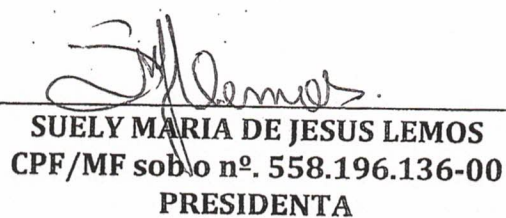 SMLemos.
SUELY MARIA DE JESUS LEMOS
CPF/MF sob o nº. 558.196.136-00
PRESIDENTA